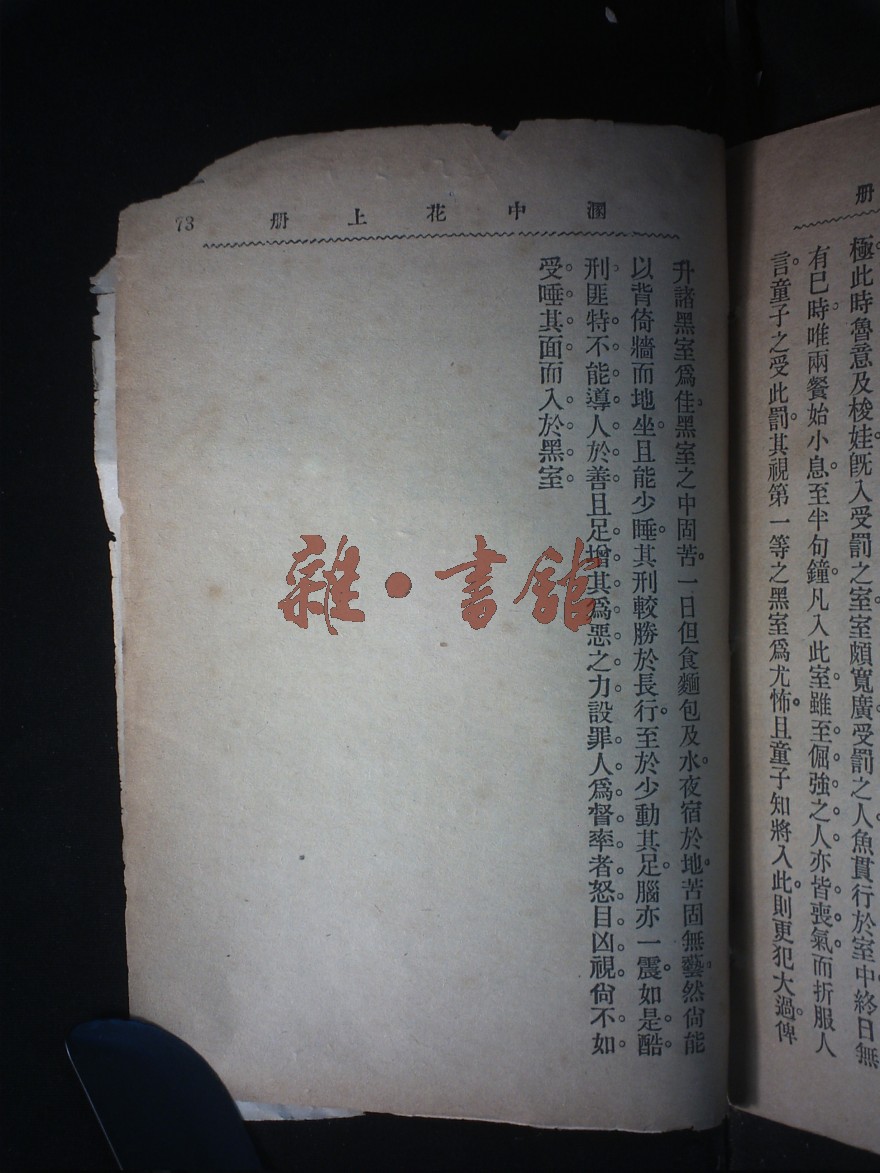 册
極此時魯意及梭娃旣入受罰之室室頗寬廣受罰之人魚貫行於室中終日無
有已時唯兩餐始小息至半句鐘凡入此室雖至倔強之人亦皆喪氣而折服人
言童子之受此罰其視第一等之黑室爲尤怖且童子知將入此則更犯大過俾
溷中花上册 73
升諸黑室爲佳黑室之中固苦一日但食麵包及水夜宿於地苦固無藝然尙能
以背倚牆而地坐且能少睡其刑較勝於長行至於少動其足腦亦一震如是酷
刑匪特不能導人於善且足增其爲惡之力設罪人爲督率者怒目凶視尙不如
受唾其面而入於黑室
雜·書館